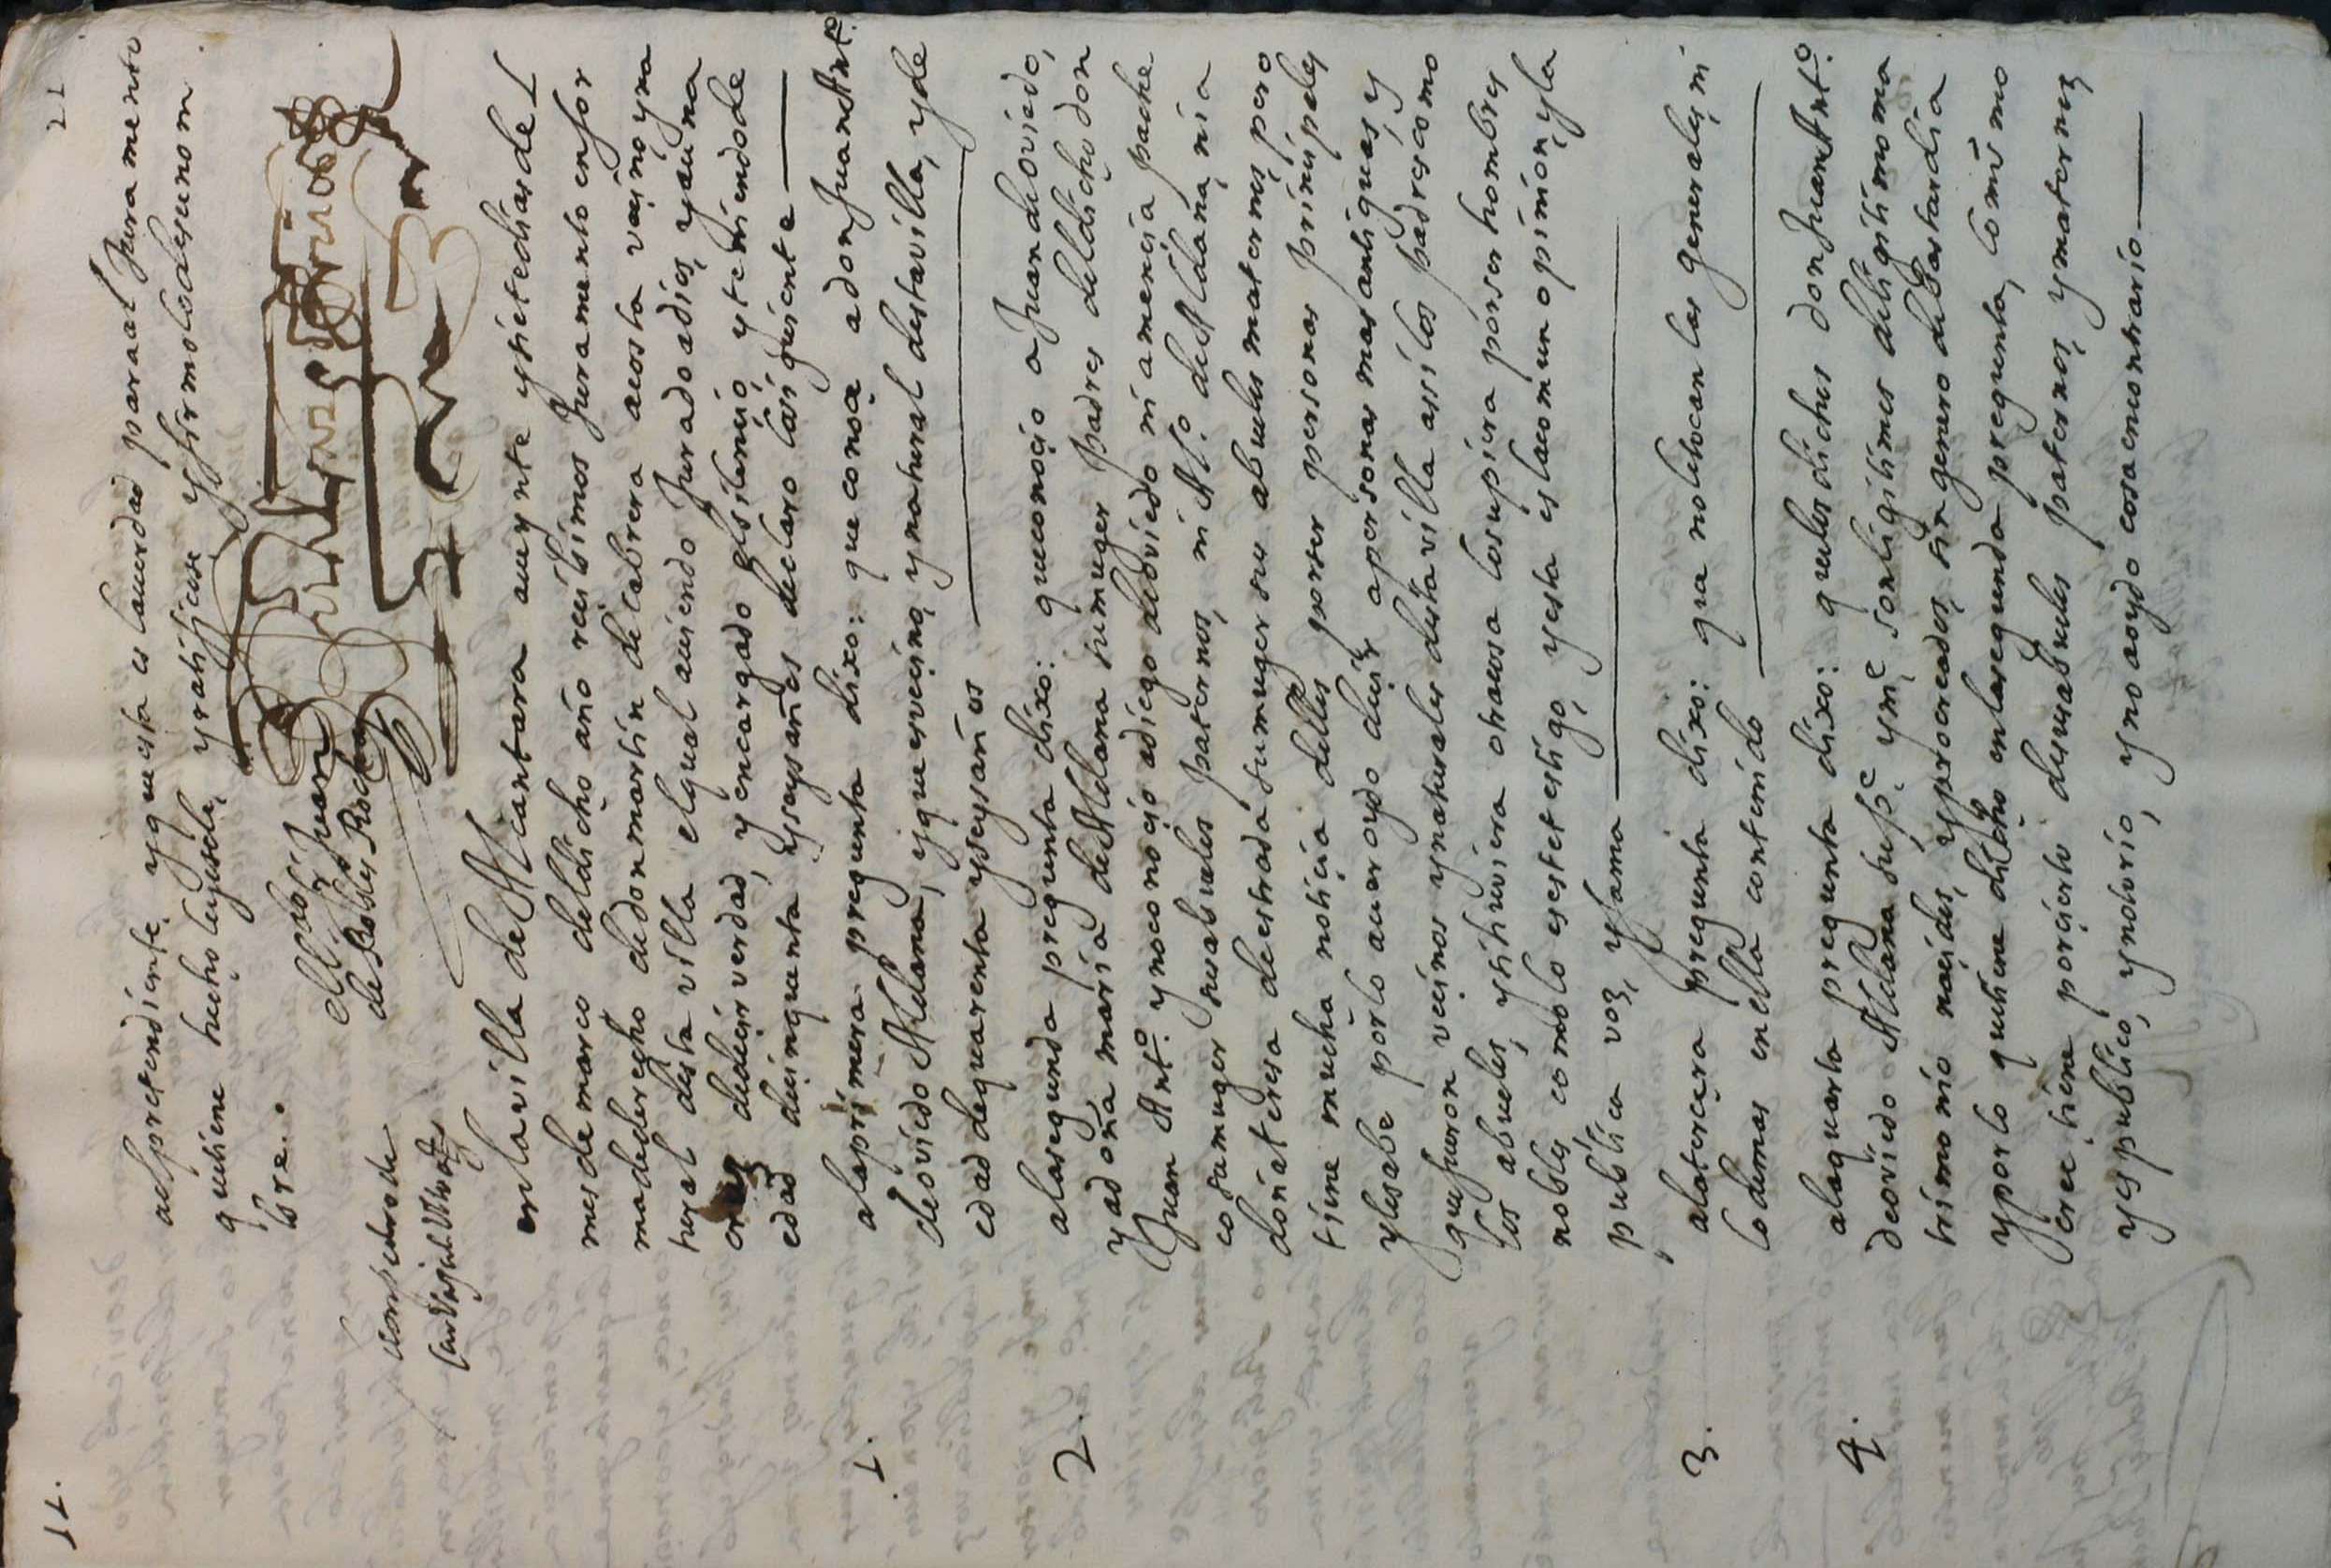 11.
21
al pretendiente, y que esta es la uerdad para al Juramento
que tiene hecho leyosele, y ratificose y firmolo de su nom
bre.
El ldo. fr. Juan
de Robles Rocha
en la villa de Alcantara a ueynte y siete dias de l
mes de março del dicho año recibimos Juramento en for
ma de derecho de don martin de cabrera a costa vecino y na
tural desta villa el qual auiendo Jurado a dios, y a una
cruz de decir verdad, y encargado el silencio, y teniendo de
edad de cinquenta y seys añes declaro lo siguiente
1. a la primera pregunta dixo: que conoce a don Juan Anto.
de oviedo Aldana, y que es vecino, y natural desta villa, y de
edad de quarenta y seys años
2. a la segunda pregunta dixo: que conocio a Juan de oviedo,
y a doña maria de Aldana su muger padres del dicho don
Juan Anto. y no conocio a diego de oviedo ni a mencia pache
co su muger sus abuelos paternos, ni Alo. de Aldana, ni a
doña teresa de estrada su muger sus abuelos maternos pero
tiene mucha noticia dellos por ser personas principales
y lo sabe por lo auer oydo decir a personas mas antiguas, y
que fueron vecinos y naturales desta villa assi los padres como
los abuelos, y si huviera otra cosa lo supiera por ser hombres
nobles como lo es este testigo, y esta es la comun opinion, y la
publica voz, y fama
3. a la tercera pregunta dixo: que no le tocan las generales, ni
lo demas en ella contenido
4. a la quarta pregunta dixo: que los dichos don Juan Anto.
de oviedo Aldana su pe. y me. son ligitimes de ligitimo ma
trimonio nacidos, y procreados sin genero de bastardia
y por lo que tiene dicho en la segunda pregunta, como
cree tiene por cierto de sus abuelos paternos, y maternos
y es publico, y notorio, y no a oydo cosa en contrario